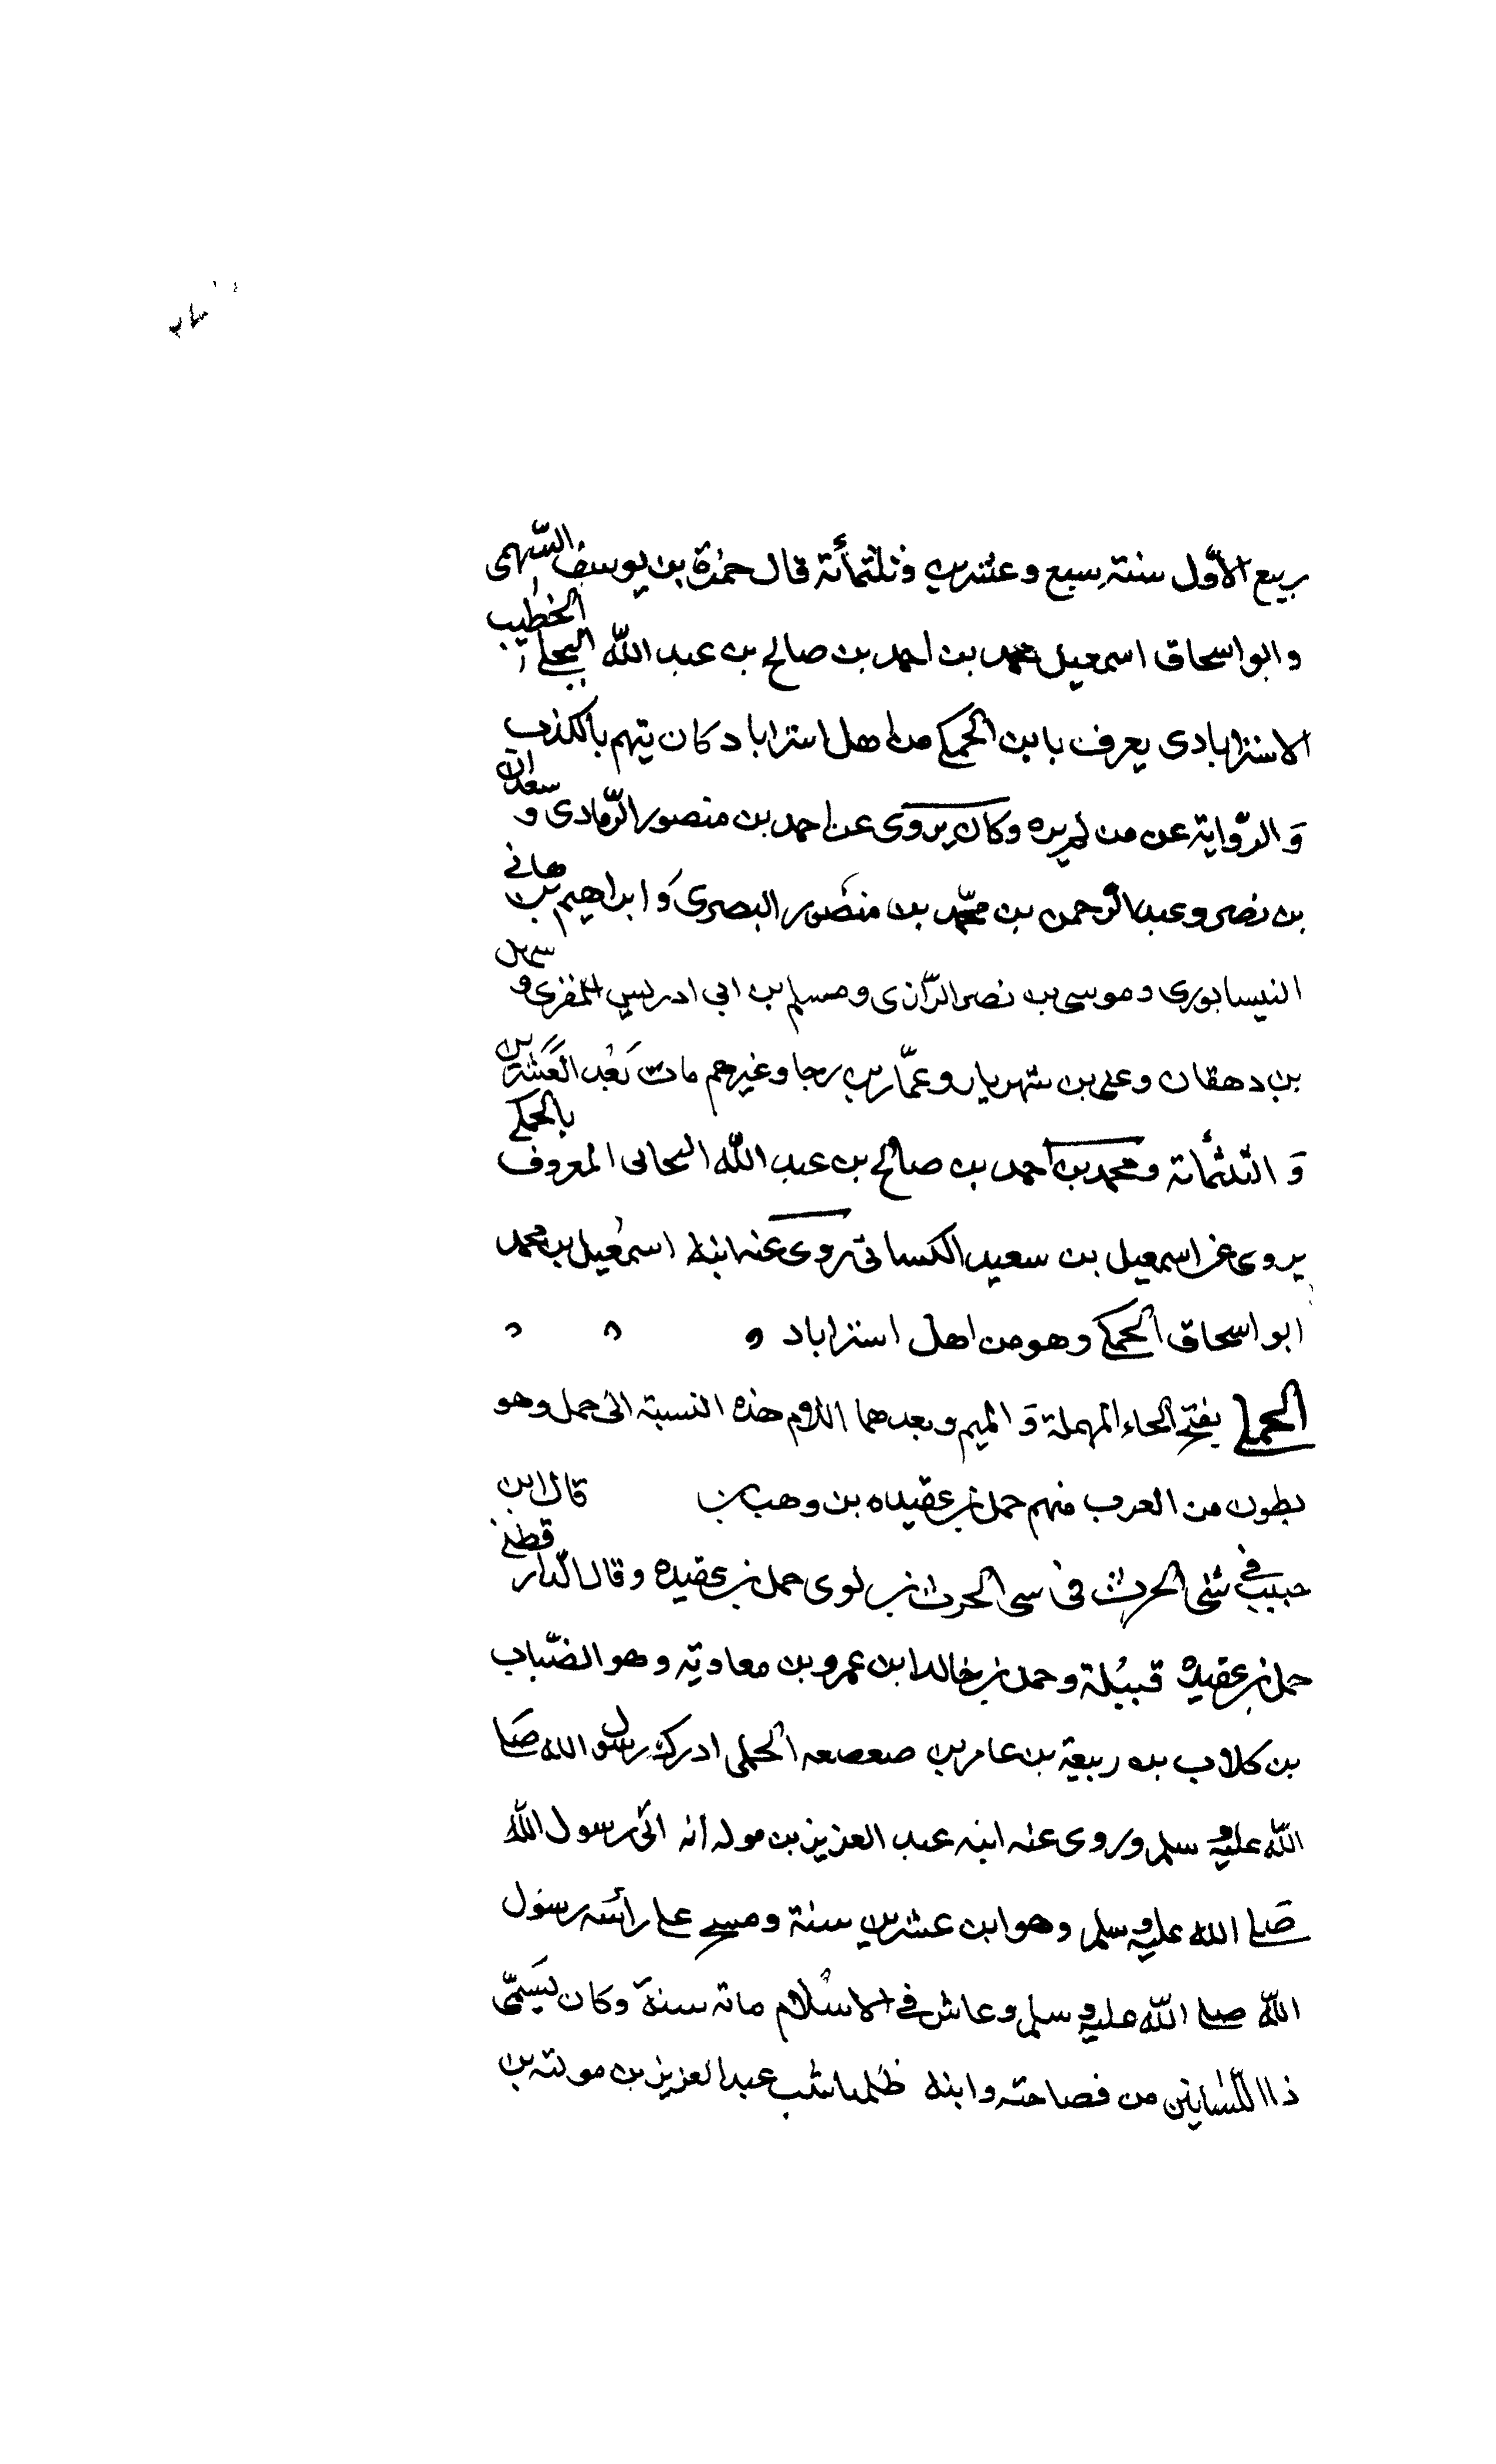 ربيع الاوّل سنة سبع وعشرين وثلثمأئة قال حمزة بن يوسف السّهمى
وابو اسحاق اسمعيل بن محمد بن احمد بن صالح بن عبد اللّه البجلى الخطيب
الاستراباذى يعرف بابن الحمكى من اهل استراباد كان يتهم بالكذب
وَ الروّاية عن من لم يره وكان يروى عن احمد بن منصور الرّمادى و سعدان
بن نصر وعبد الرحمن بن محمّد بن منصور البصرى وَ ابراهيم بن هانى
النيسابورى وموسى بن نصر الرّازى ومسلم بن ابى ادريس المقرى و سهل
بن دهقان وعلى بن شهريار وعمّار بن رجا وغيرهم مات بَعْد العَشرين
وَ الثلثمائة ومحمد بن احمد بن صالح بن عبد اللّه المعروف بالحمكى
يروى عن اسمعيل بن سعيد الكسائى روى عنه ابنه اسمعيل بن محمد
ابو اسحاق الحمكى وهو من اهل استراباد
الحملى بفتح الحاء المهملة وَ الميم وبعدهما اللام هذه النسبة الى حمل وهو
بطون من العرب منهم حمل بن عقيده بن وهب بن قال ابن
حبيب فى الحرث فى سى الحرث بن لوى حمل بن عقيده وقال الدّار قطنى
حمل بن عقيده قبيلة وحمل بن خالد ابن عمرو بن معاوية وهو الضّباب
بن كلاب بن ربيعة بن عامر بن صعصعه الحملى ادرك رسول الله صَلى
اللّه عليه و سلم وروى عنه ابنه عبد العزيز بن موله انه اتى رسول اللّه
صَلى الله عليه و سلم وهو ابن عشرين سنة ومسح على رأسه رسول
اللّه صلى اللّه عليه و سلم وعاش فى الاسلام مائة سنة وكان يسَمّى
ذا اللّسانين من فصاحته وابنه عبد العزيز بن مولة بن